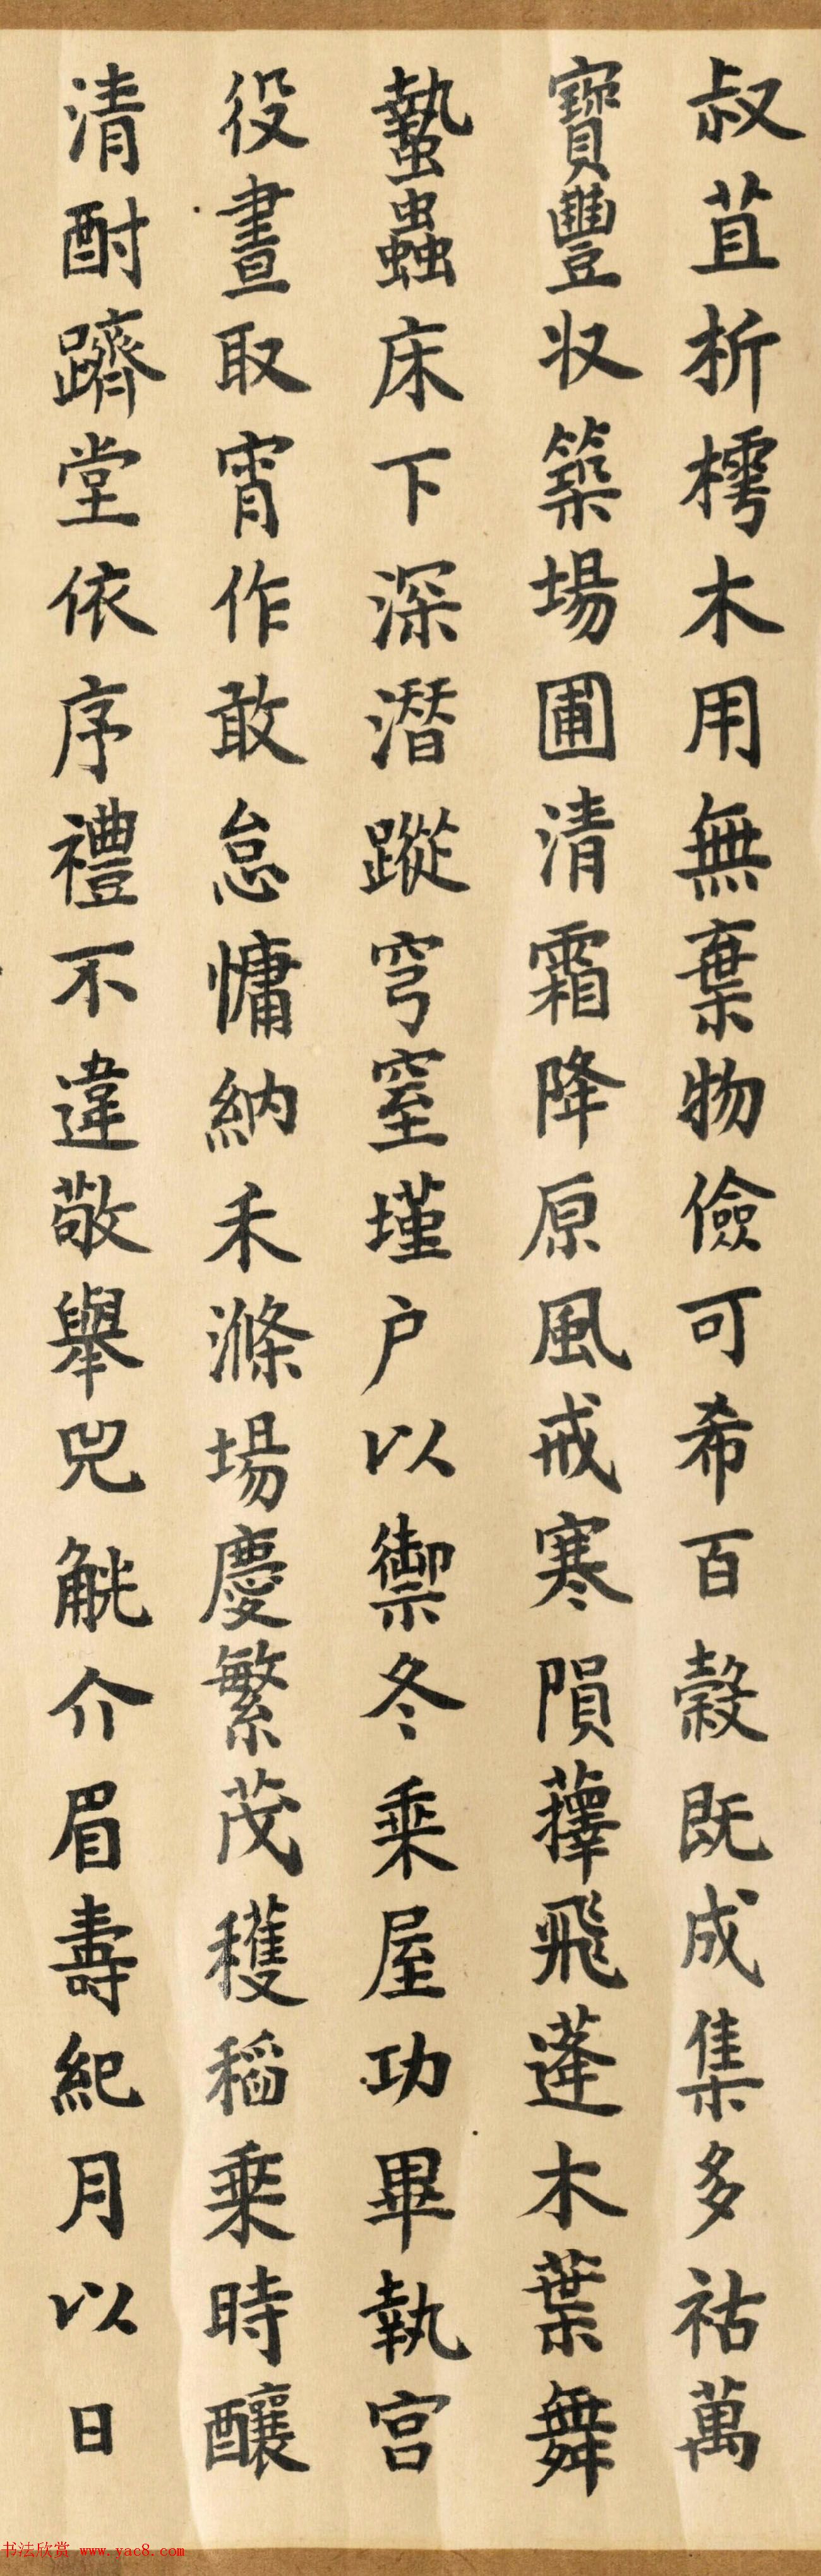 叔苴折樗木用無棄物儉可希百穀既成集多祜萬
寶豐収築場圃清霜降原風戒寒隕蘀飛蓬木葉舞
蟄蟲床下深潛蹤穹窒墐户以禦冬乘屋功畢執宮
役晝取宵作敢怠慵納禾滌場慶繁茂穫稻乗時釀
清酎躋堂依序禮不違敬舉兕觥介眉壽紀月以日
书法欣赏 www.vac8.com